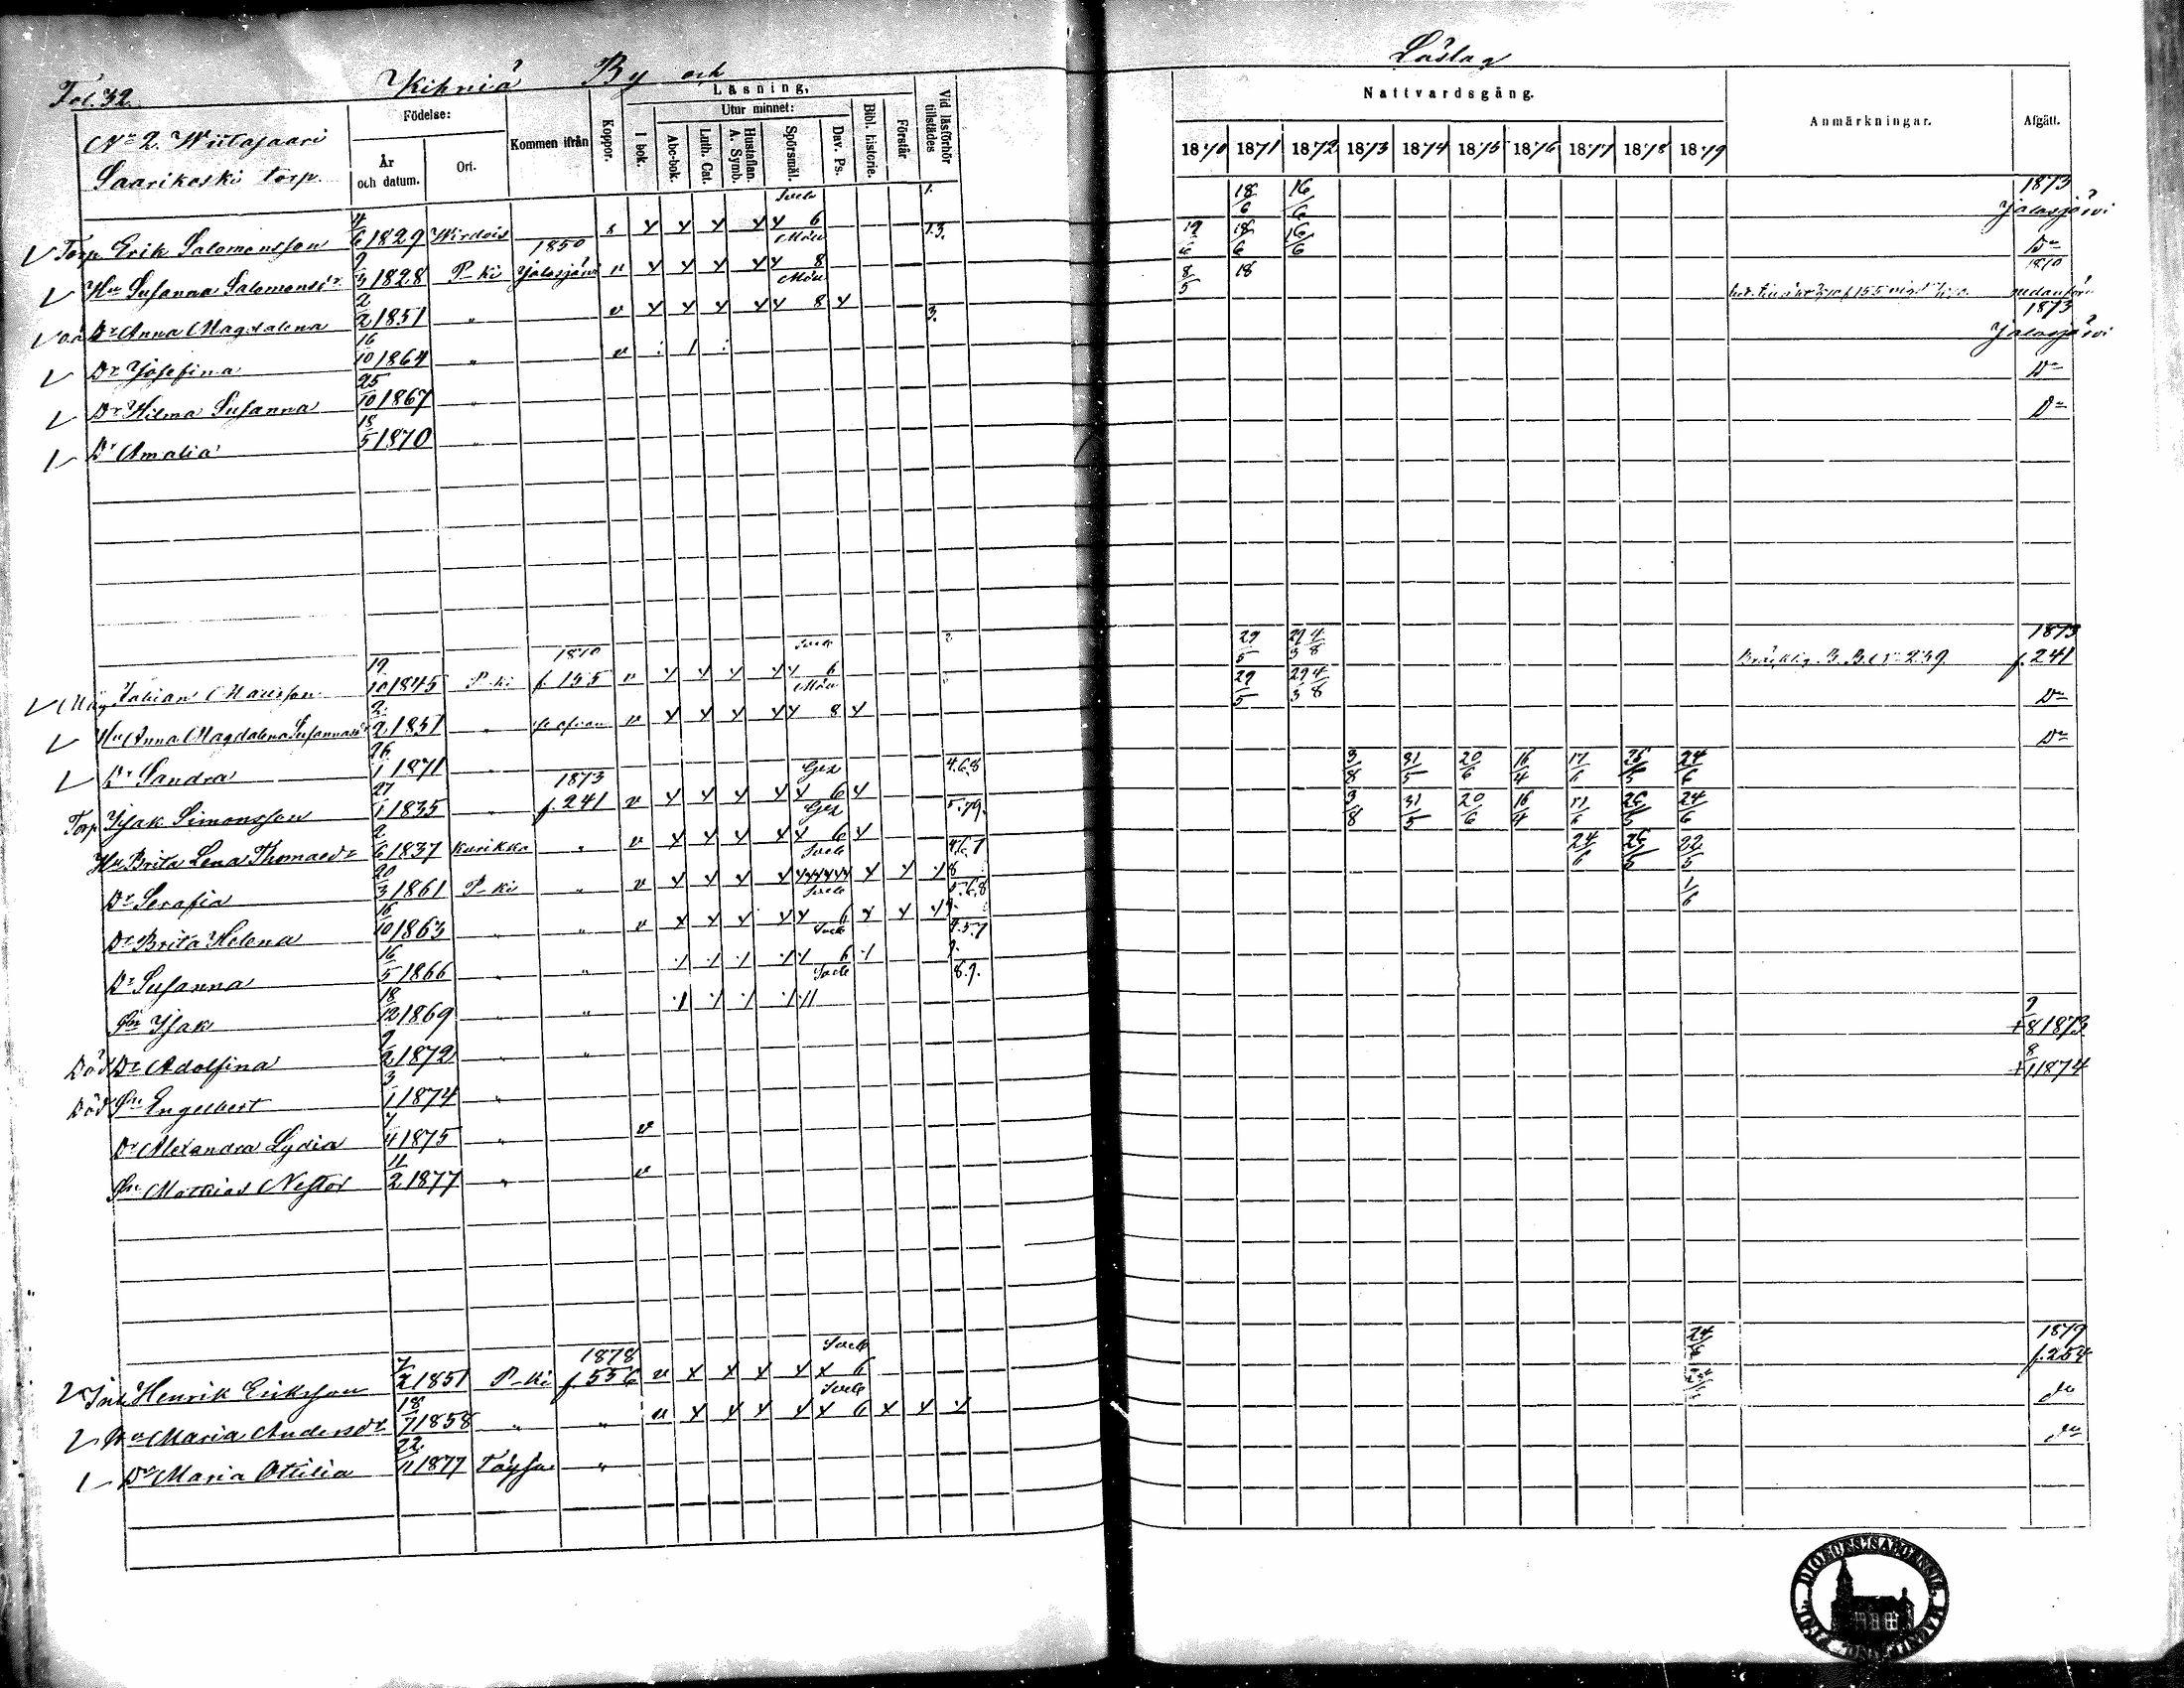 Fol. 32. Kihniä By och Läslag
No 2. Wiitasaari
Saarikoski torp.
Födelse:
År och datum.
Ort.
Kommen ifrån
Koppor.
Läsning,
I bok.
Utur minnet:
Abc-bok.
Luth. Cat.
Hustaflan. A. Symb.
Spörsmål.
Dav. Ps.
Bibl. historie.
Förstår
Vid läsförhör tillstädes
Nattvardsgång.
1870 1871 1872 1873 1874 1875 1876 1877 1878 1879
Anmärkningar.
Afgått.
Torp. Erik Salomonsson 4/6 1829 Wirdois 6 1. 18/6 16/6 1873 Jalasjärvi
Hu Susanna Salomonsdr 9/3 1828 P-ki 1850 Jalasjärvi v 8 1.3. 19/6 18/6 16/6 Do
Dr Anna Magdalena 2/2 1851 " v 8 8/5 18 1870 nedanföre
Dr Josefina 16/10 1864 " v 3. 1873 Jalasjärvi
Dr Hilma Susanna 25/10 1867 " Do
Dr Amalia 18/5 1870 " Do
Måg Fabian Mattsson 19/10 1845 P-ki 1870 f. 155 v 6 29/5 29/3 4/8 Bräcklig B. B. No 239. 1873 f. 241
Hu Anna Magdalena Susannasdr 2/2 1851 " v 8 29/5 29/3 4/8 Do
Dr Sandra 26/1 1871 " Do
Torp Isak Simonsson 27/1 1835 " 1873 f. 241 v 6 4.6.8 3/8 31/5 20/6 16/4 17/6 26/5 24/6
Hu Brita Lena Thomasdr 2/6 1837 Kurikka " v 6 5.79. 3/8 31/5 20/6 16/4 17/6 26/5 24/6
Dr Serafia 20/3 1861 P-ki " v 4.6.7 8 24/6 26/5 22/5
Dr Brita Helena 16/10 1863 " " v 6 5.6.8 1/6
Dr Susanna 16/5 1866 " " 6 4.5.7
Sn Isak 18/12 1869 " " 8.9.
Död Dr Adolfina 9/2 1872 " " + 9/8 1873
Död Sn Engelbert 3/1 1874 " + 8/1 1874
Dr Alexandra Lydia 7/4 1875 " v
Sn Mattias Nestor 11/2 1877 " v
Inh Henrik Eriksson 7/2 1851 P-ki 1878 f. 556 v 6 1879 f. 254
Hu Maria Andersdr 18/7 1858 " " v 6 do
Dr Maria Ottilia 22/11 1877 Töysä " do